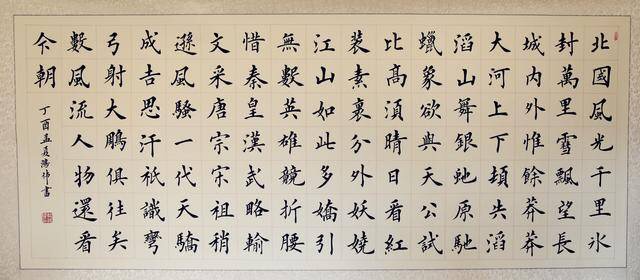 北國風光千里氷
封萬里雪飄望長
城内外惟餘莽莽
大河上下頓失滔
滔山舞銀虵原馳
蠟象欲與天公試
比高湏晴日看紅
裝素裹分外妖嬈
江山如此多嬌引
無數英雄競折腰
惜秦皇漢武略輸
文采唐宗宋祖稍
遜風騷一代天驕
成吉思汗祇識彎
弓射大鵰俱往矣
數風流人物還看
今朝
丁酉孟夏書